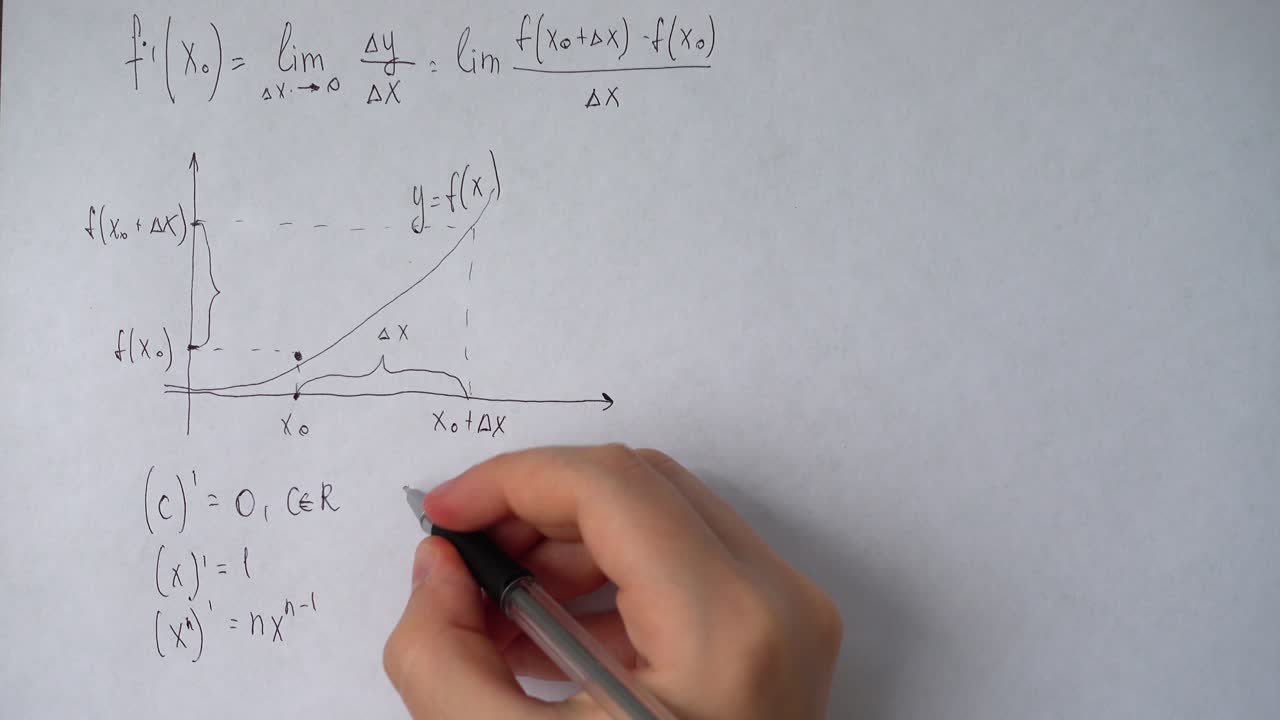 f'(x₀) = lim Δx→0 Δy/Δx = lim f(x₀+Δx) - f(x₀)/Δx
y=f(x)
f(x₀+Δx)
f(x₀)
Δx
x₀
x₀+Δx
(c)' = 0, C∈R
(x)' = 1
(xⁿ)' = nxⁿ⁻¹